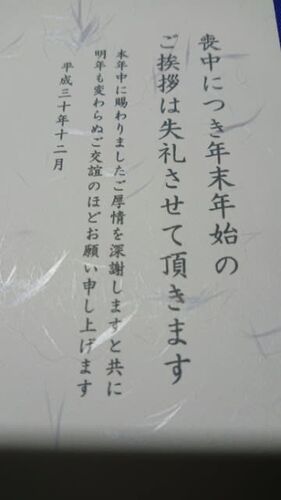 喪中につき年末年始の
ご挨拶は失礼させて頂きます
本年中に賜わりましたご厚情を深謝しますと共に
明年も変わらぬご交誼のほどお願い申し上げます
平成三十年十二月